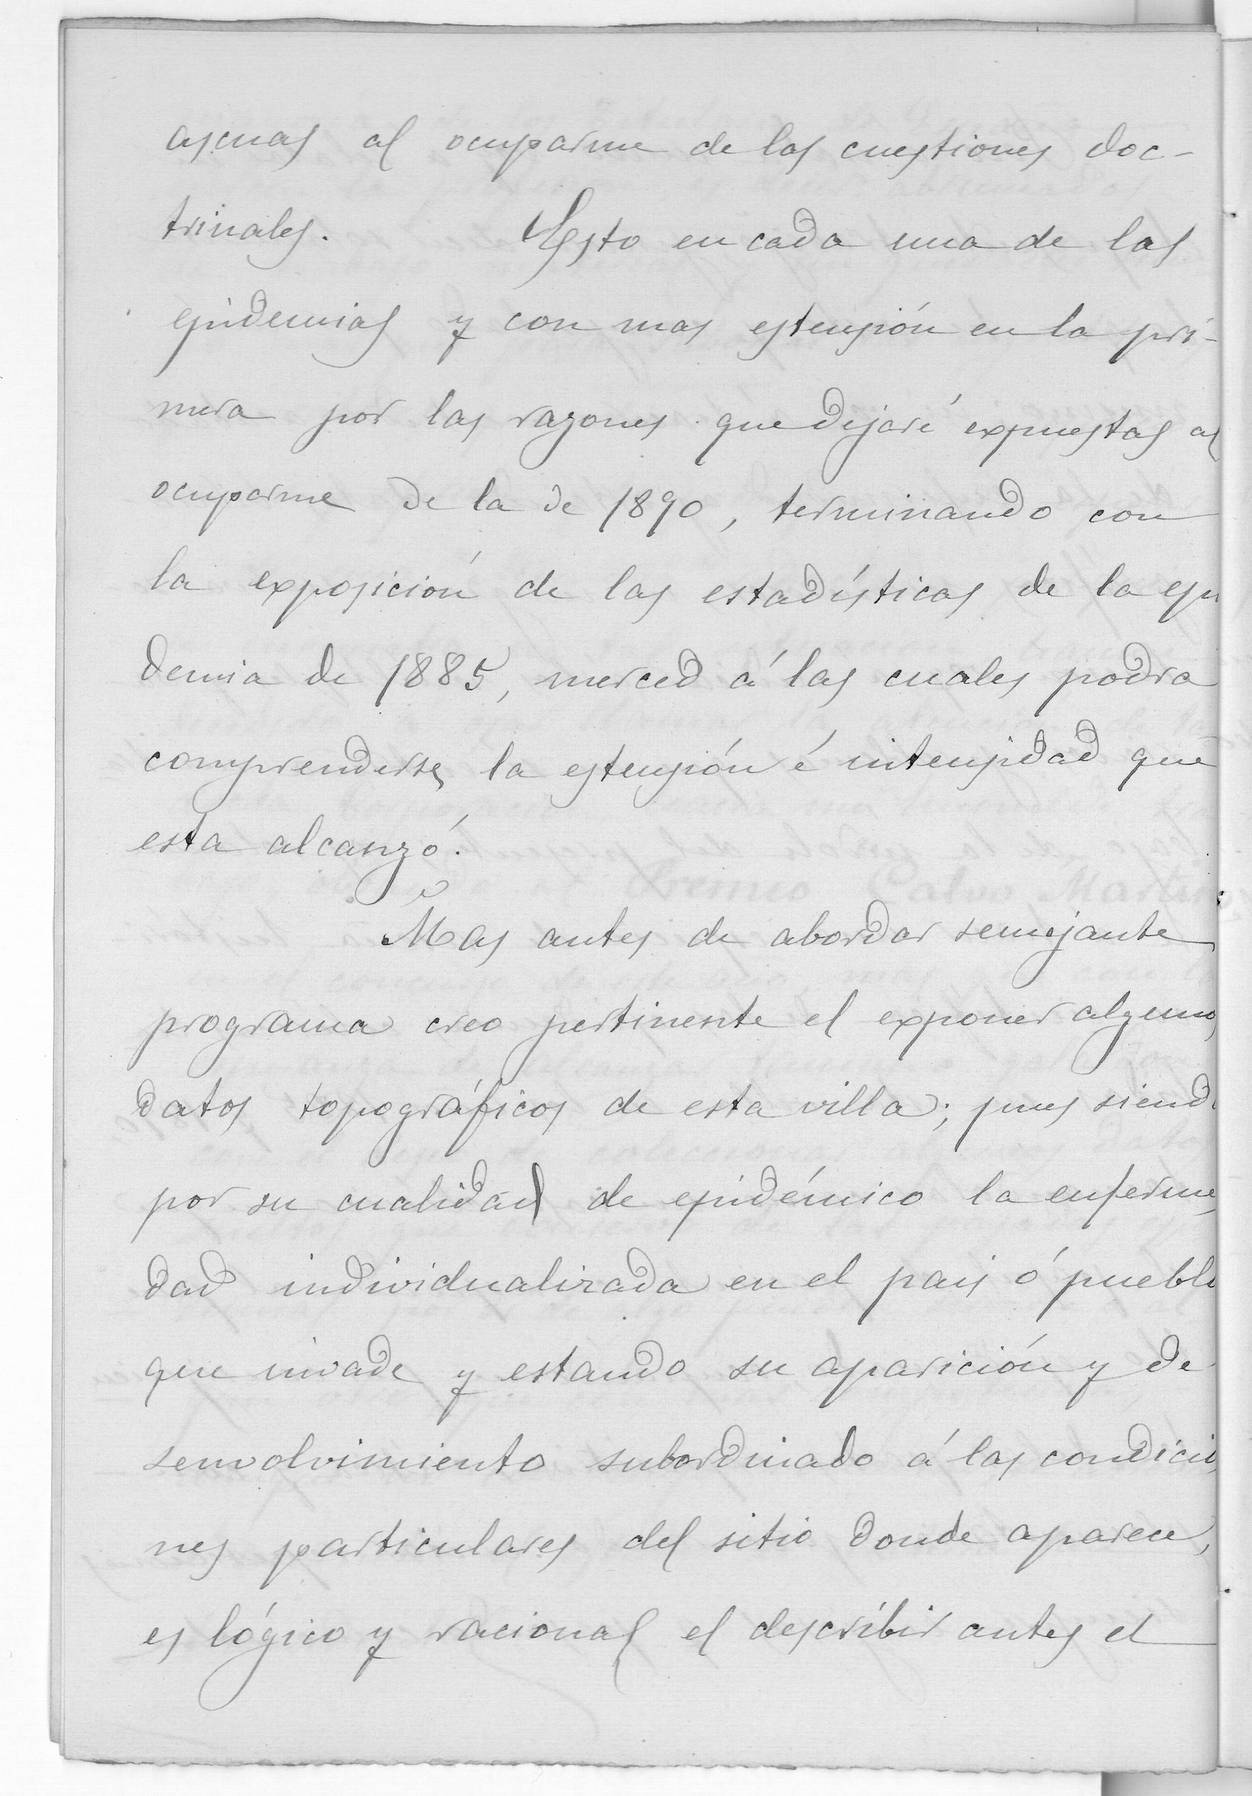 ascuas al ocuparme de las cuestiones doc-
trinales. Esto en cada una de las
epidemias y con mas estensión en la pri-
mera por las razones que dejaré expuestas al
ocuparme de la de 1890, terminando con
la exposición de las estadísticas de la epi
demia de 1885, merced á las cuales podra
comprenderse la estensión é intensidad que
esta alcanzó.
Mas antes de abordar semejante
programa creo pertinente el exponer algunos
datos topográficos de esta villa; pues siendo
por su cualidad de epidémico la enferme
dad individualizada en el pais ó pueblo
que invade y estando su aparición y de
senvolvimiento subordinado á las condicio
nes particulares del sitio donde aparece,
es lógico y racional el describir antes el